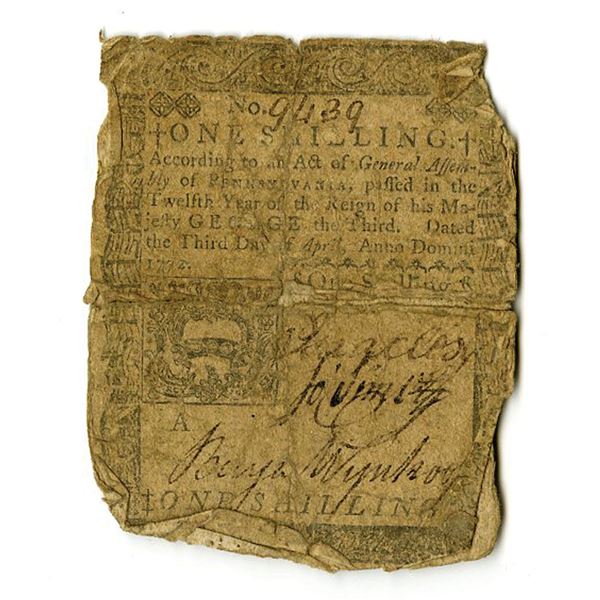 No. 9439
‡ONE SHILLING.‡
According to an Act of General Aſſem-
bly of PENNSYLVANIA, paſſed in the
Twelfth Year of the Reign of his Ma-
jeſty GEORGE the Third. Dated
the Third Day of April, Anno Domini
1772.
A
Benja Wynkoop
‡ONE SHILLING